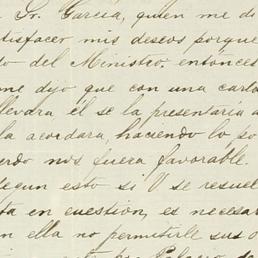 Sr. García, quien me di
tisfacer mis deseos porque
to del Ministro, entonces
me dijo que con una carta
llevara él se la presentaria a
la acordara, haciendo lo po
erdo nos fuera favorable.
segun esto si V se resuel
ta en cuestión, es necesa
n ella no permitirle sus o